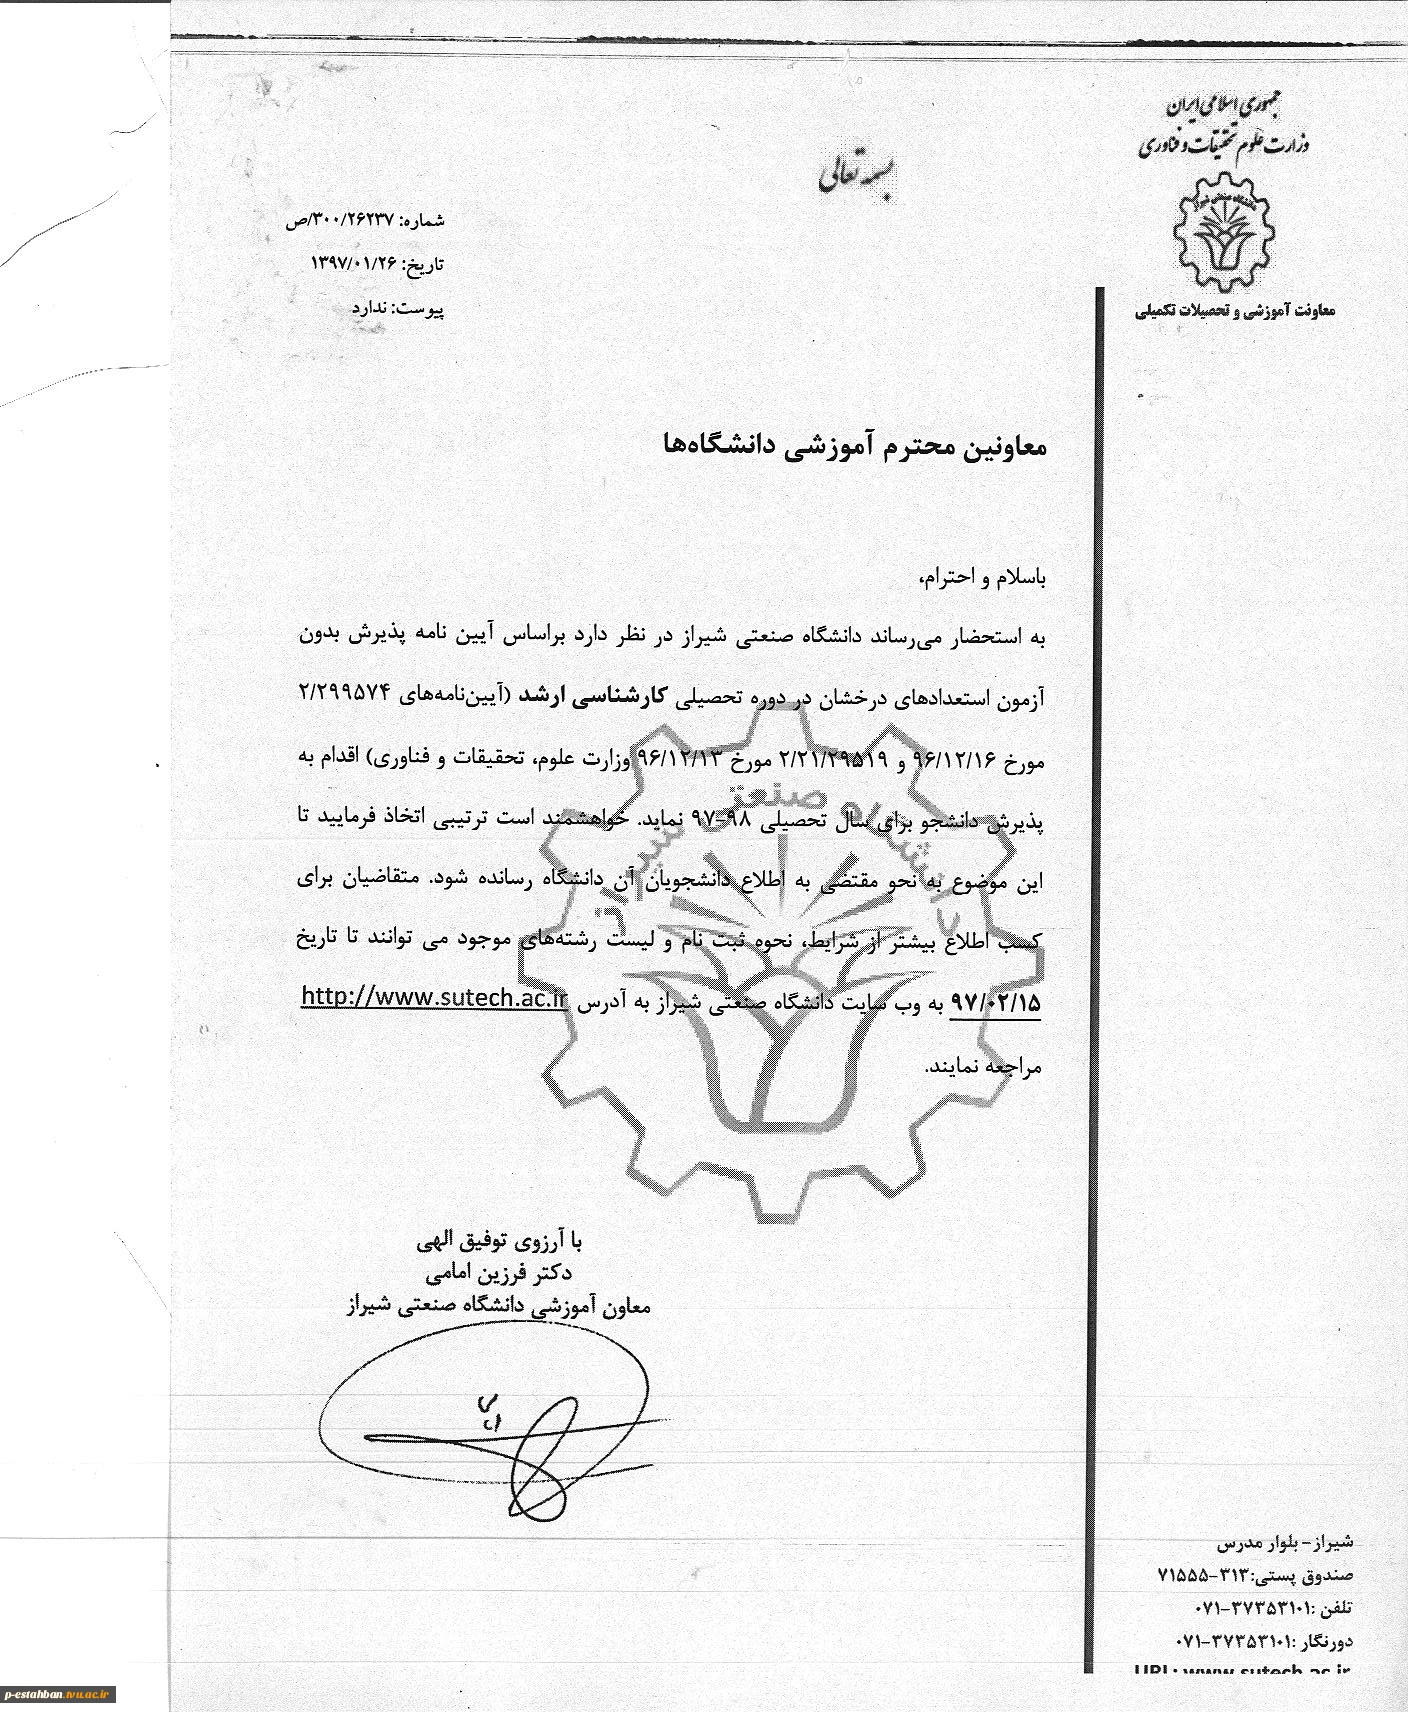 جمهوری اسلامی ایران
وزارت علوم تحقیقات و فناوری
دانشگاه صنعتی شیراز
معاونت آموزشی و تحصیلات تکمیلی
بسمه تعالی
شماره: ۳۰۰/۲۶۲۳۷/ص
تاریخ: ۱۳۹۷/۰۱/۲۶
پیوست: ندارد
معاونین محترم آموزشی دانشگاه‌ها
باسلام و احترام،
به استحضار می‌رساند دانشگاه صنعتی شیراز در نظر دارد براساس آیین نامه پذیرش بدون
آزمون استعدادهای درخشان در دوره تحصیلی کارشناسی ارشد (آیین‌نامه‌های ۲/۲۹۹۵۷۴
مورخ ۹۶/۱۲/۱۶ و ۲/۲۱/۲۹۵۱۹ مورخ ۹۶/۱۲/۱۳ وزارت علوم، تحقیقات و فناوری) اقدام به
پذیرش دانشجو برای سال تحصیلی ۹۸-۹۷ نماید. خواهشمند است ترتیبی اتخاذ فرمایید تا
این موضوع به نحو مقتضی به اطلاع دانشجویان آن دانشگاه رسانده شود. متقاضیان برای
کسب اطلاع بیشتر از شرایط، نحوه ثبت نام و لیست رشته‌های موجود می توانند تا تاریخ
۹۷/۰۲/۱۵ به وب سایت دانشگاه صنعتی شیراز به آدرس http://www.sutech.ac.ir
مراجعه نمایند.
دانشگاه صنعتی شیراز
با آرزوی توفیق الهی
دکتر فرزین امامی
معاون آموزشی دانشگاه صنعتی شیراز
شیراز- بلوار مدرس
صندوق پستی:۳۱۳-۷۱۵۵۵
تلفن :۳۷۳۵۳۱۰۱-۰۷۱
دورنگار :۳۷۳۵۳۱۰۱-۰۷۱
URL: www.sutech.ac.ir
p-estahban.tvu.ac.ir